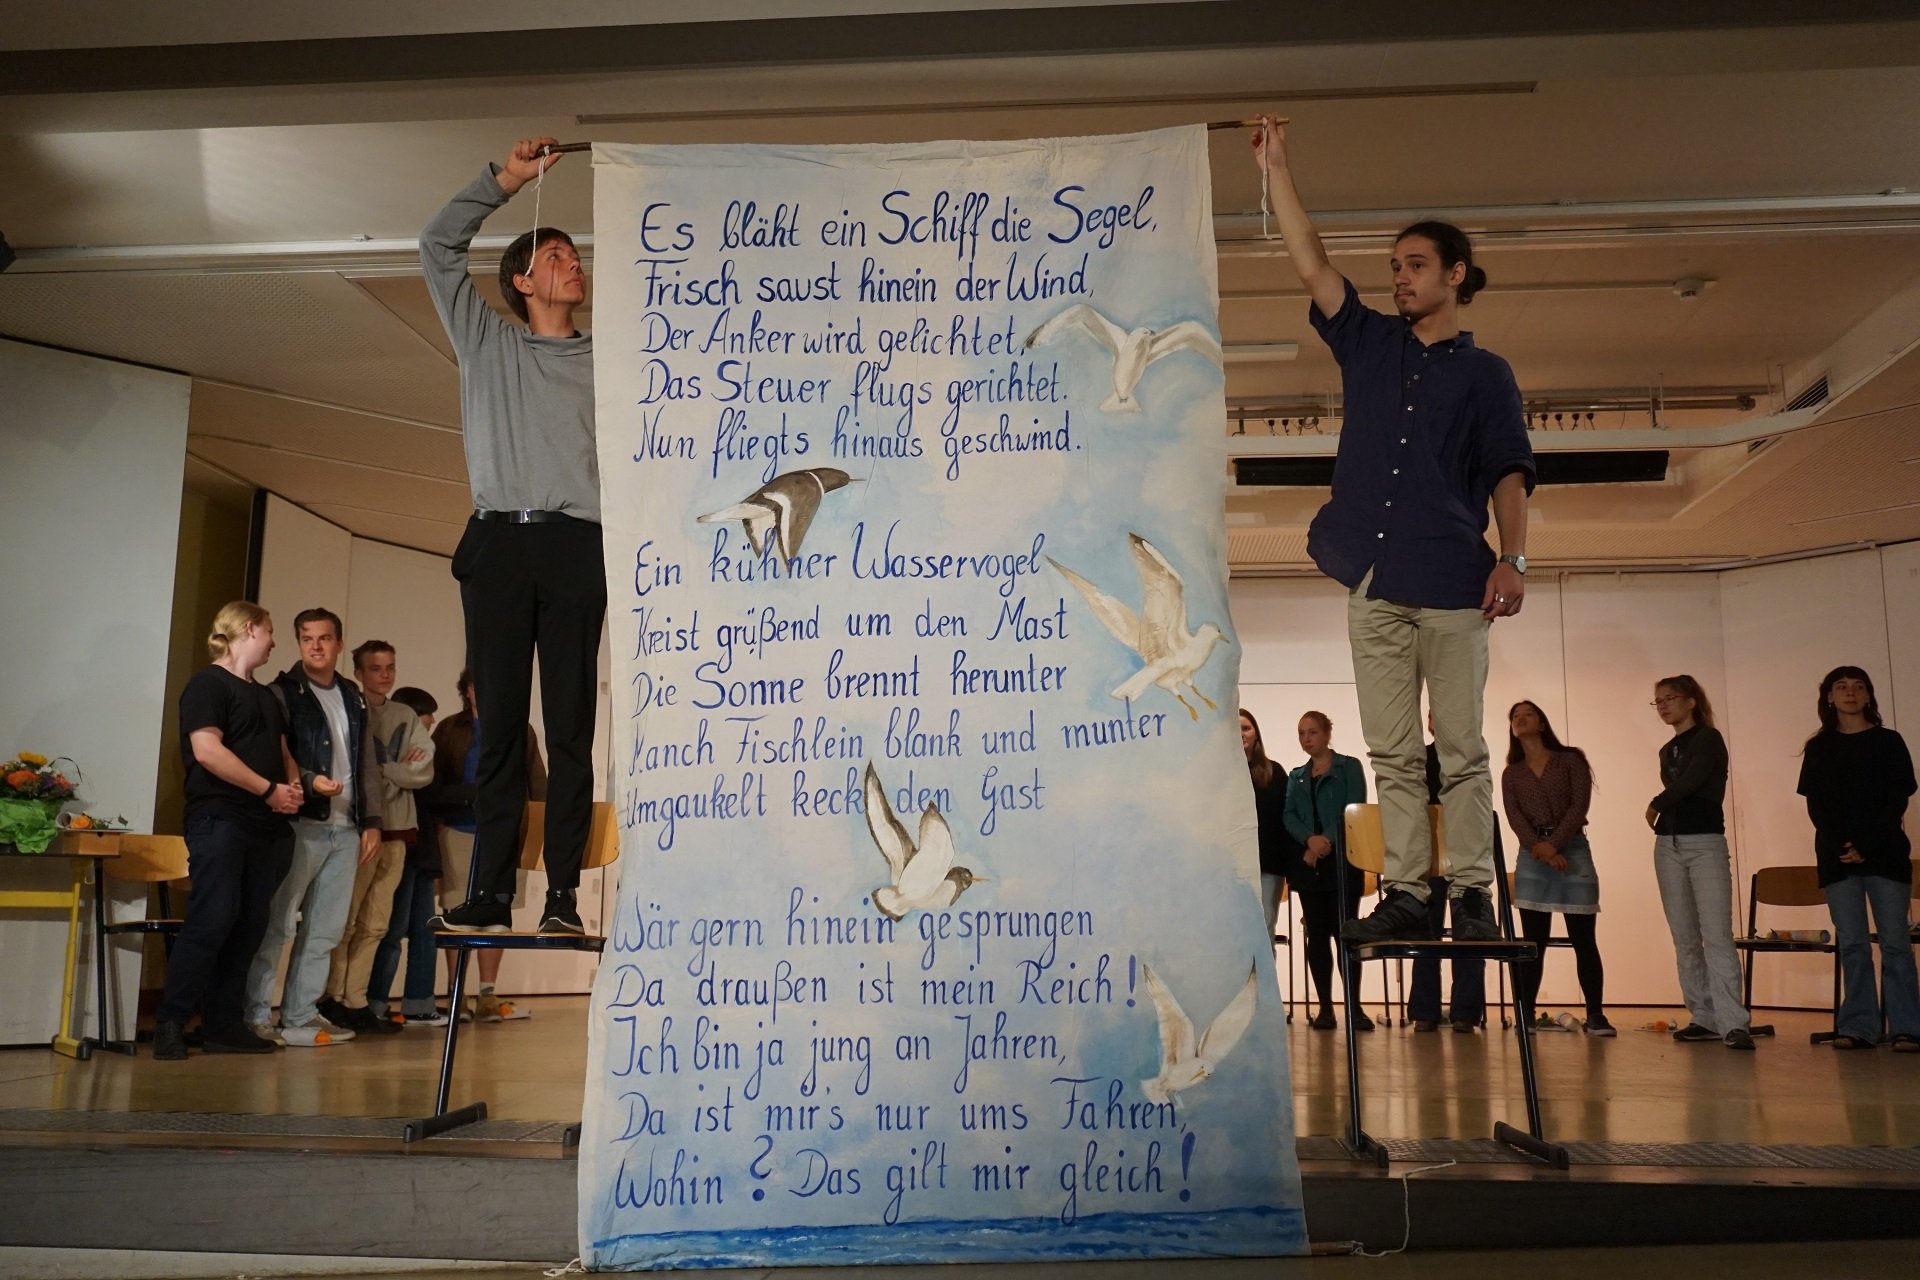 Es bläht ein Schiff die Segel,
Frisch saust hinein der Wind,
Der Anker wird gelichtet,
Das Steuer flugs gerichtet.
Nun fliegts hinaus geschwind.
Ein kühner Wasservogel
Kreist grüßend um den Mast
Die Sonne brennt herunter
Manch Fischlein blank und munter
Umgaukelt keck den Gast
Wär gern hinein gesprungen
Da draußen ist mein Reich!
Ich bin ja jung an Jahren,
Da ist mir's nur ums Fahren,
Wohin? Das gilt mir gleich!